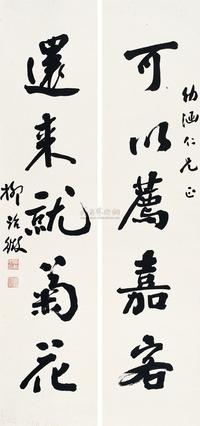 幼涵仁兄正
可以荐嘉客
還来就菊花
柳詒徵